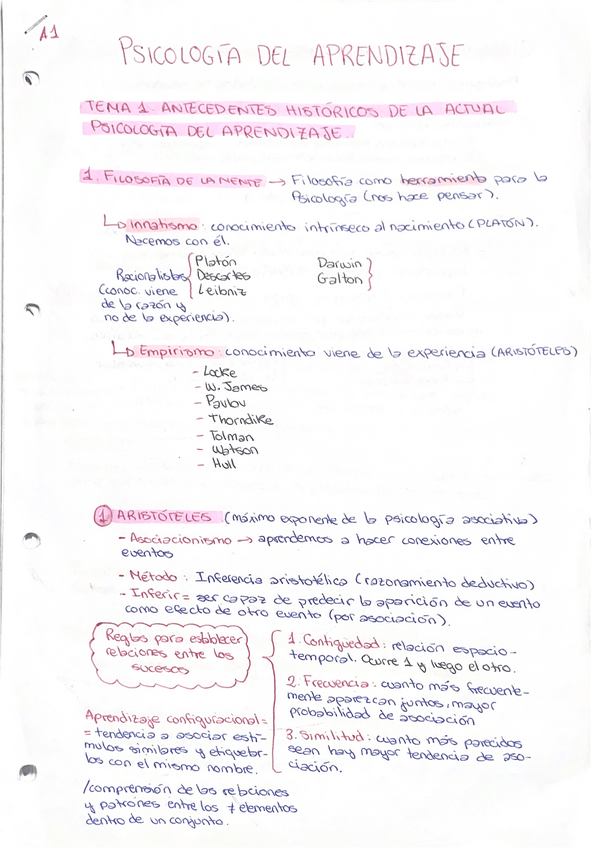 A1
PSICOLOGÍA DEL APRENDIZAJE
TEMA 1. ANTECEDENTES HISTÓRICOS DE LA ACTUAL
PSICOLOGÍA DEL APRENDIZAJE.
1. FILOSOFÍA DE LA MENTE → Filosofía como herramienta para la
Psicología (nos hace pensar).
↳ Innatismo: conocimiento intrínseco al nacimiento (PLATÓN).
Nacemos con él.
Racionalistas
(conoc. viene
de la razón y
no de la experiencia).
Platón
Descartes
Leibniz
Darwin
Galton
↳ Empirismo: conocimiento viene de la experiencia (ARISTÓTELES)
- Locke
- W. James
- Pavlov
- Thorndike
- Tolman
- Watson
- Hull
1 ARISTÓTELES (máximo exponente de la psicología asociativa)
- Asociacionismo → aprendemos a hacer conexiones entre
eventos
- Método: Inferencia aristotélica (razonamiento deductivo)
- Inferir = ser capaz de predecir la aparición de un evento
como efecto de otro evento (por asociación).
Reglas para establecer
relaciones entre los
sucesos
1. Contigüedad: relación espacio-
temporal. Ocurre 1 y luego el otro.
2. Frecuencia: cuanto más frecuente-
mente aparezcan juntos, mayor
probabilidad de asociación
3. Similitud: cuanto más parecidos
sean hay mayor tendencia de aso-
ciación.
Aprendizaje configuracional =
= tendencia a asociar estí-
mulos similares y etiquetar-
los con el mismo nombre.
/comprensión de las relaciones
y patrones entre los ≠ elementos
dentro de un conjunto.